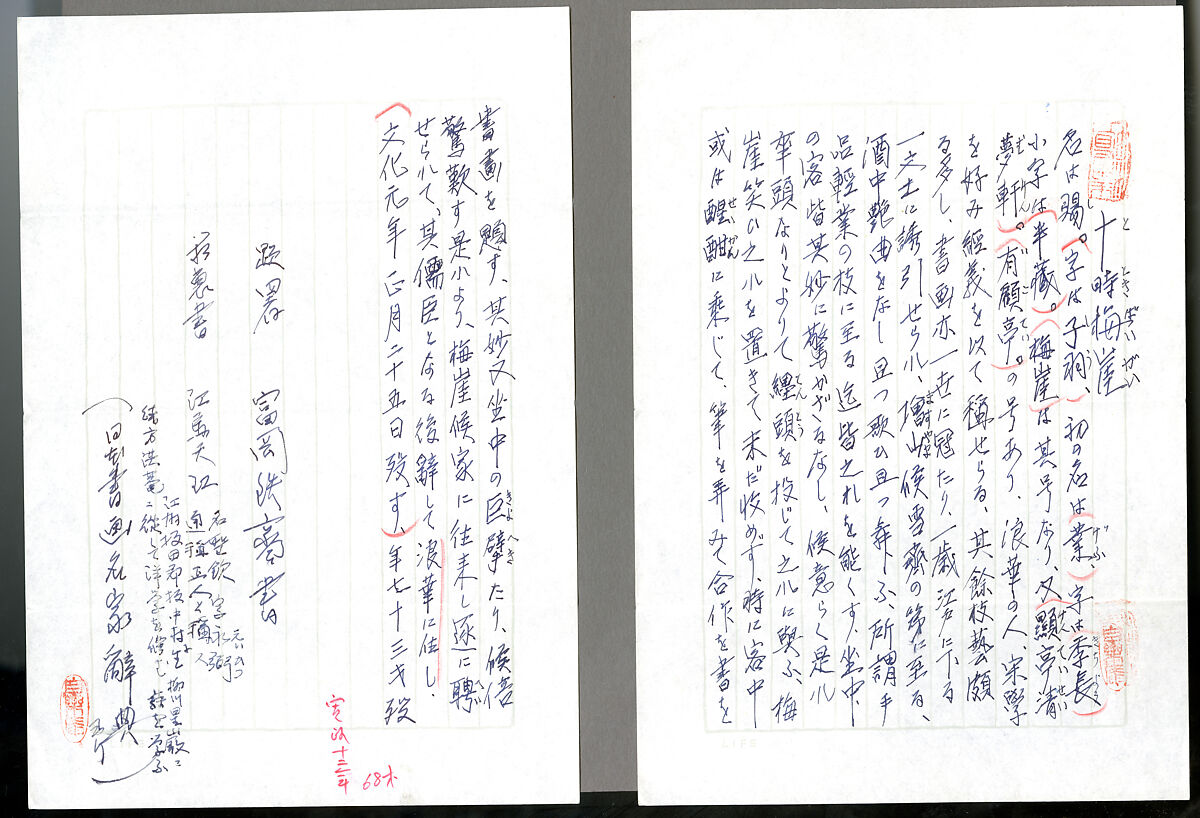 十時梅崖
名は賜。字は子羽、初の名は業、字は季長
小字は半蔵。梅崖は其号なり、又顕亭清
夢軒。有顧亭。の号あり、浪華の人、宋学
を好み經義を以て称せらる、其餘枝藝頗
る多し、書画亦一世に冠たり、一歳江戸に下る
一文士に誘引せられ、増山候雪齋の第に至る、
酒中艶曲をなし且つ歌ひ且つ舞ふ、所謂手
品軽業の枝に至る迄皆之れを能くす、坐中
の客皆其妙に驚かざるなし、候意らく是れ
牽頭なりとよりて纒頭を投じて之れに與ふ、梅
崖笑ひ之れを置きて未だ收めず、時に客中
或は醒酣に乗じて、筆を弄みて合作を書を
書畵を題す、其妙又坐中の巨擘たり、候倍
驚歎す是れより、梅崖候家に往来し遂に聘
せられて、其儒臣となる後辭して浪華に住し
文化元年正月二十五日歿す、年七十三才歿
寛政十三年
68才
題署 富岡鉄斎書
江馬天江
名聖欽 字永弼
通称正人と称ス
江州坂田郡坂中村生
緒方洪菴ニ従して洋学を修む
日本書画名家辭典
LIFE